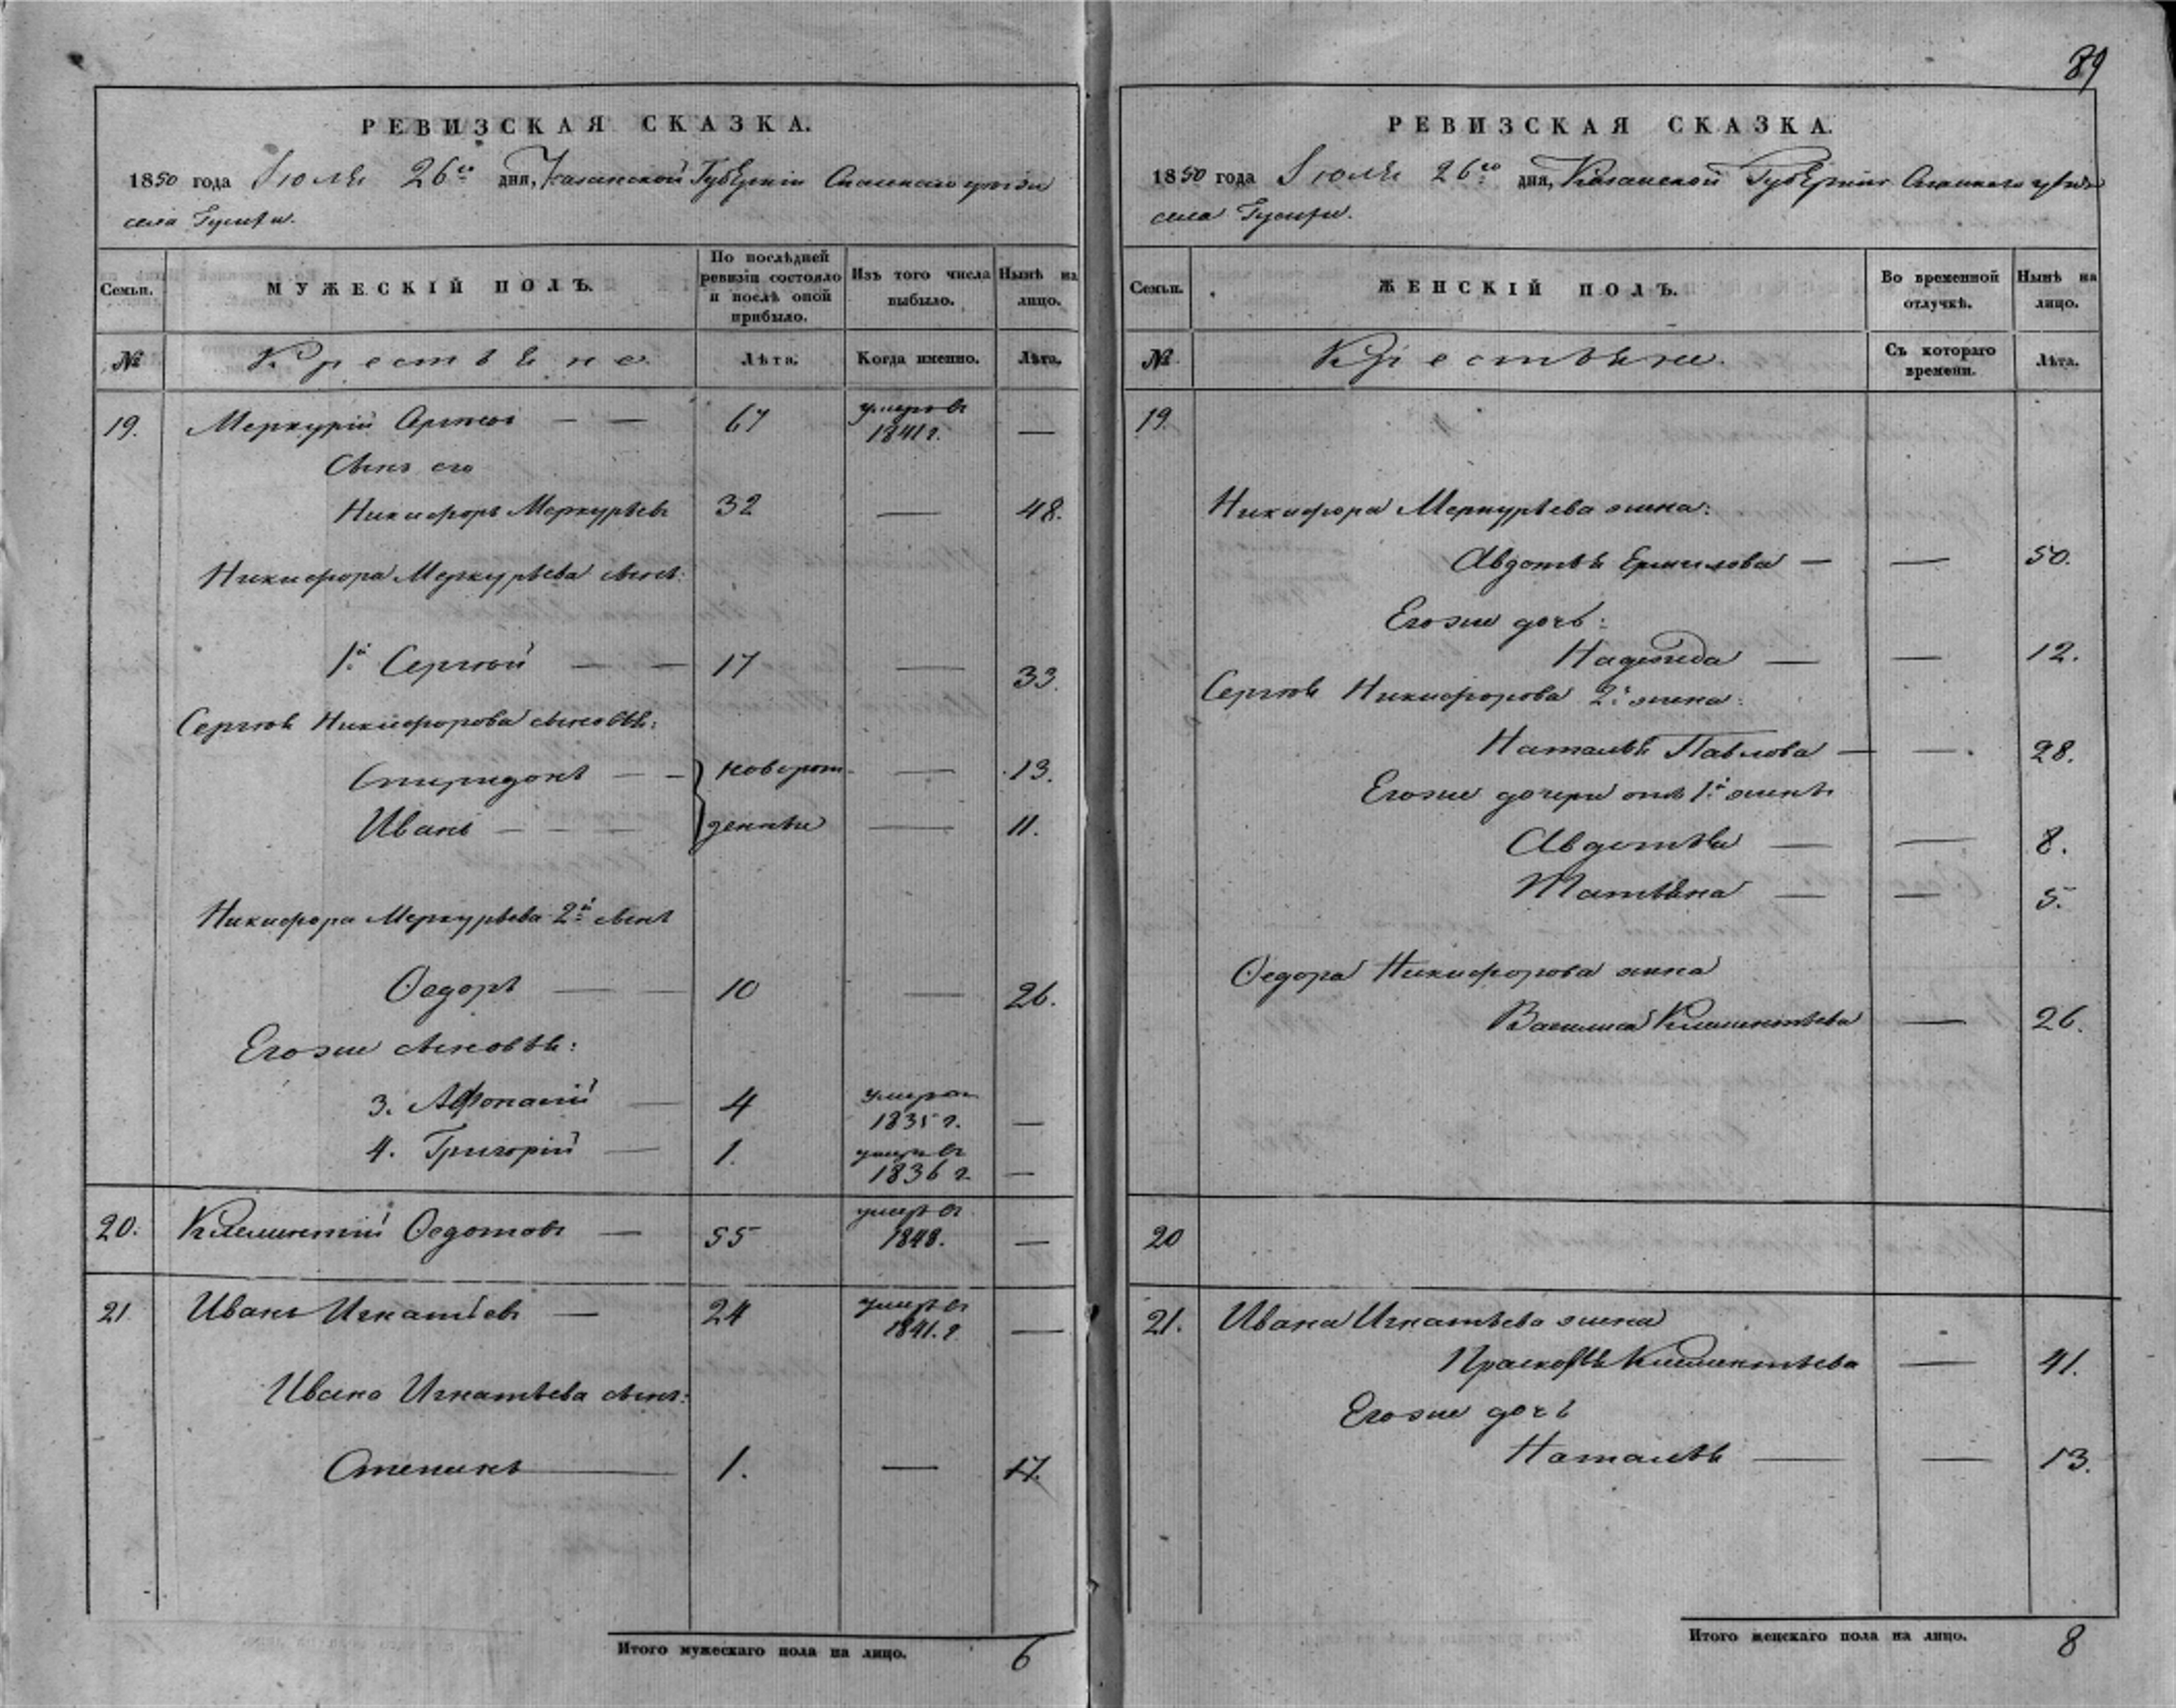 89
РЕВИЗСКАЯ СКАЗКА.
1850 года Іюля 26го дня, Казанской Губерніи Спаскаго уѣзда
села
МУЖЕСКІЙ ПОЛЪ.
Семьи.
По послѣдней ревизіи состояло и послѣ оной прибыло.
Изъ того числа выбыло.
Нынѣ на лицо.
№
Крестьяне
Лѣта.
Когда именно.
Лѣта.
19. Меркурій Сергѣевъ — — 67 умеръ въ 1841 г. —
Сынъ его
Никифоръ Меркурьевъ 32 — 48.
Никифора Меркурьева сынъ:
1й Сергѣй — — 17 — 33.
Сергѣя Никифорова сыновья:
Спиридонъ — — новорож- — 13.
Иванъ — — — денные — 11.
Никифора Меркурьева 2й сынъ
Ѳедоръ — — 10 — 26.
Его же сыновья:
3. Афонасій — 4 умеръ 1835 г. —
4. Григорій — 1. умеръ въ 1836 г. —
20. Клементій Ѳедотовъ — 55 умеръ въ 1848. —
21 Иванъ Игнатьевъ — 24 умеръ въ 1841. г. —
Ивана Игнатьева сынъ:
Степанъ — 1. — 17.
Итого мужескаго пола на лицо. 6
РЕВИЗСКАЯ СКАЗКА.
1850 года Іюля 26го дня, Казанской Губерніи Спаскаго уѣзда
села
Семьи.
ЖЕНСКІЙ ПОЛЪ.
Во временной отлучкѣ.
Нынѣ на лицо.
№
Крестьяне.
Съ котораго времени.
Лѣта.
19.
Никифора Меркурьева жена:
Авдотья Ермилова — — 50.
Его же дочь:
Надежда — — 12.
Сергѣя Никифорова 2я жена:
Наталья Павлова — — 28.
Его же дочери отъ 1й жены
Авдотья — — 8.
Татьяна — — 5.
Ѳедора Никифорова жена
Василиса Клементьева — 26.
20
21. Ивана Игнатьева жена
Прасковья Клементьева — 41.
Его же дочь
Наталья — — 13.
Итого женскаго пола на лицо. 8